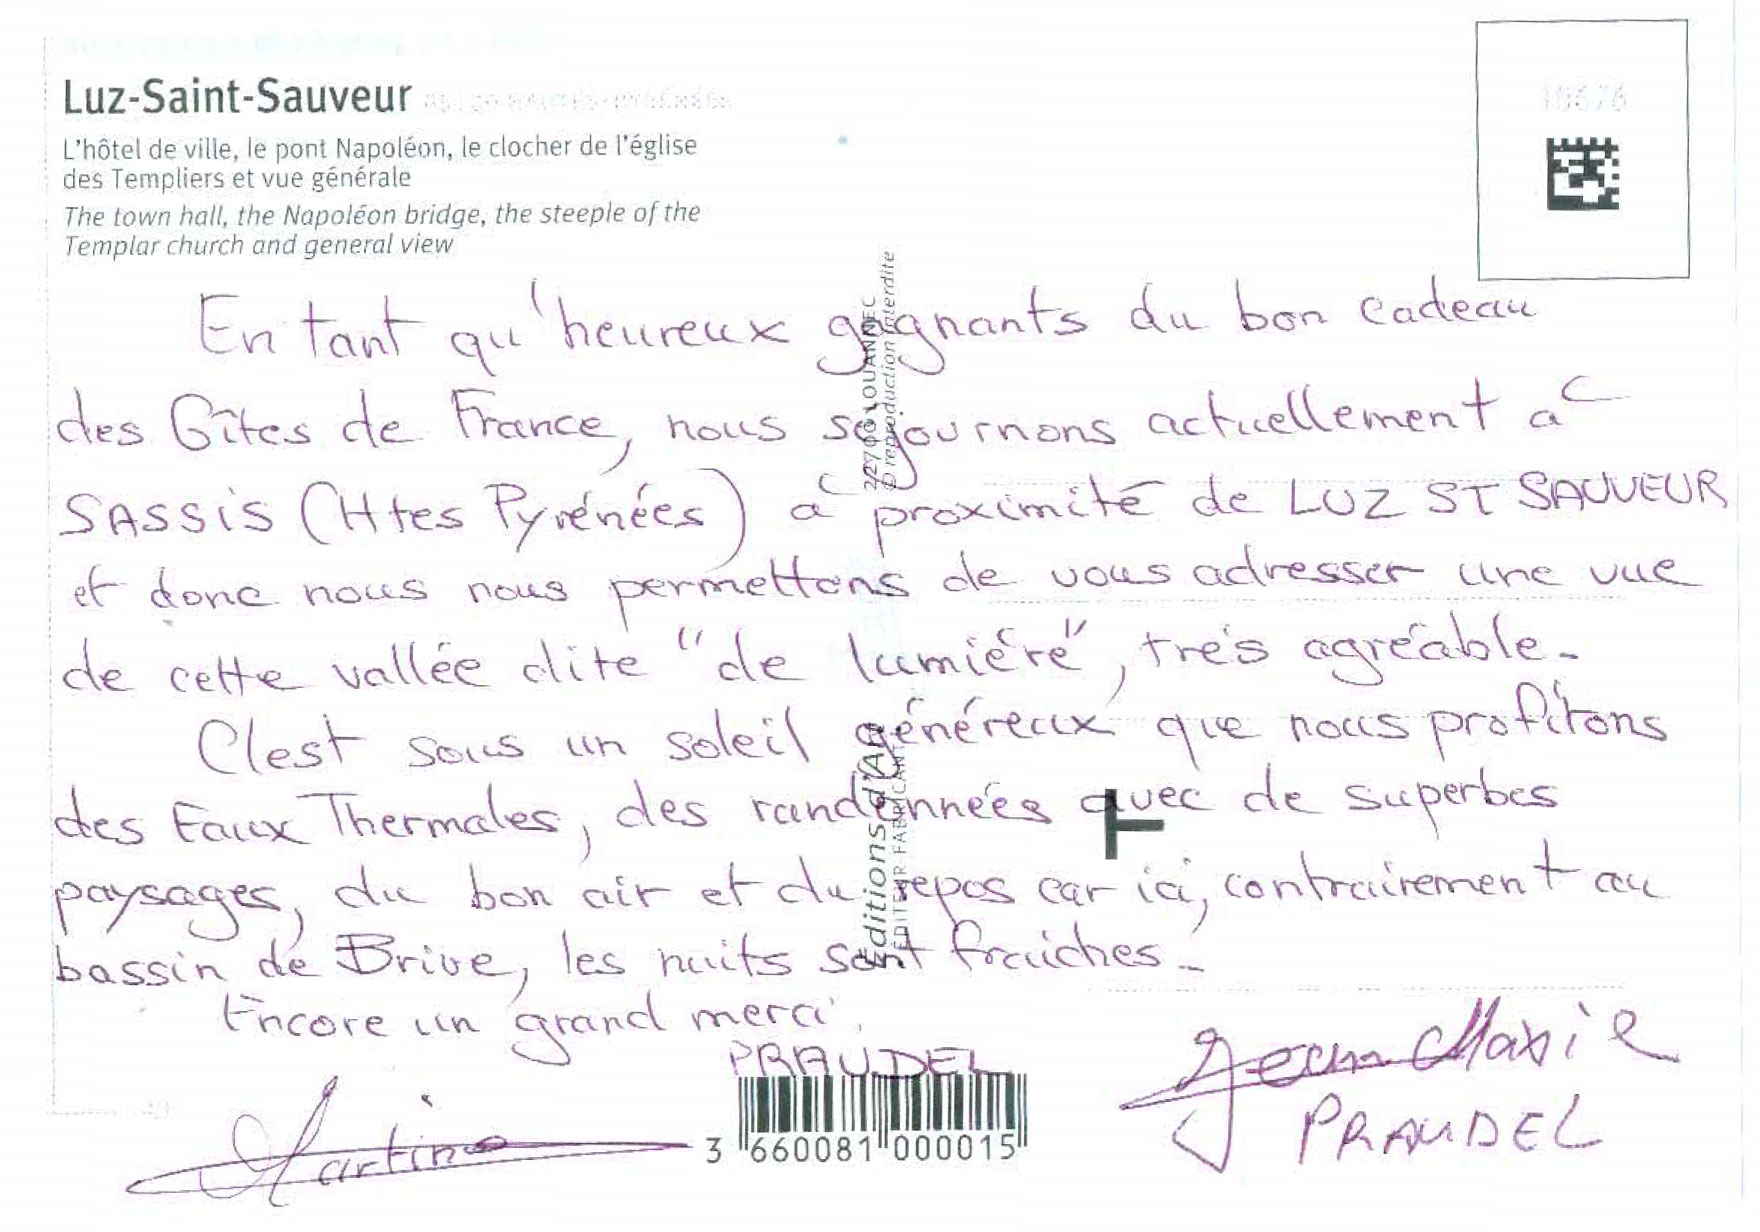 Luz-Saint-Sauveur 65120 HAUTES-PYRÉNÉES
L'hôtel de ville, le pont Napoléon, le clocher de l'église
des Templiers et vue générale
The town hall, the Napoléon bridge, the steeple of the
Templar church and general view
10676
En tant qu'heureux gagnants du bon cadeau
des Gîtes de France, nous séjournons actuellement à
SASSIS (Htes Pyrénées) à proximité de LUZ ST SAUVEUR
et donc nous nous permettons de vous adresser une vue
de cette vallée dite "de lumière", très agréable.
C'est sous un soleil généreux que nous profitons
des Eaux Thermales, des randonnées avec de superbes
paysages, du bon air et du repos car ici, contrairement au
bassin de Brive, les nuits sont fraiches.
Encore un grand merci.
PRAUDEL
Martine
Jean Marie
PRAUDEL
3 660081 000015
Éditions d'Art
ÉDITEUR FABRICANT
22700 LOUANNEC
© reproduction interdite